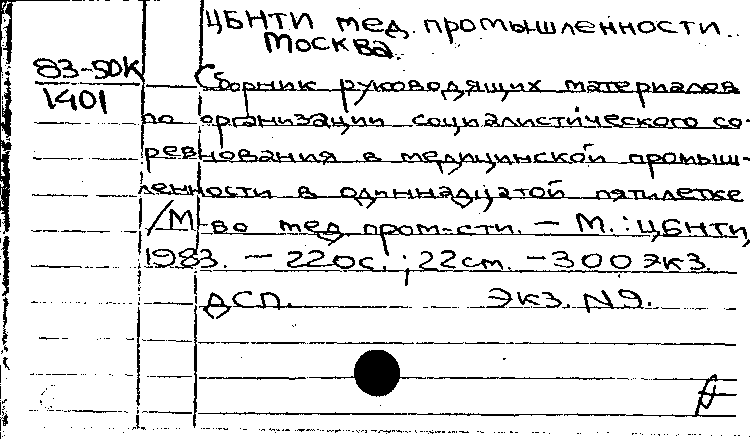 ЦБНТИ мед. промышленности.
Москва.
83-5ДК
1401
Сборник руководящих материалов
по организации социалистического со-
ревнования в медицинской промыш-
ленности в одиннадцатой пятилетке
/М-во мед. пром-сти. – М.: ЦБНТИ,
1983. – 220с.; 22см. – 300 экз.
ДСП. Экз. N9.